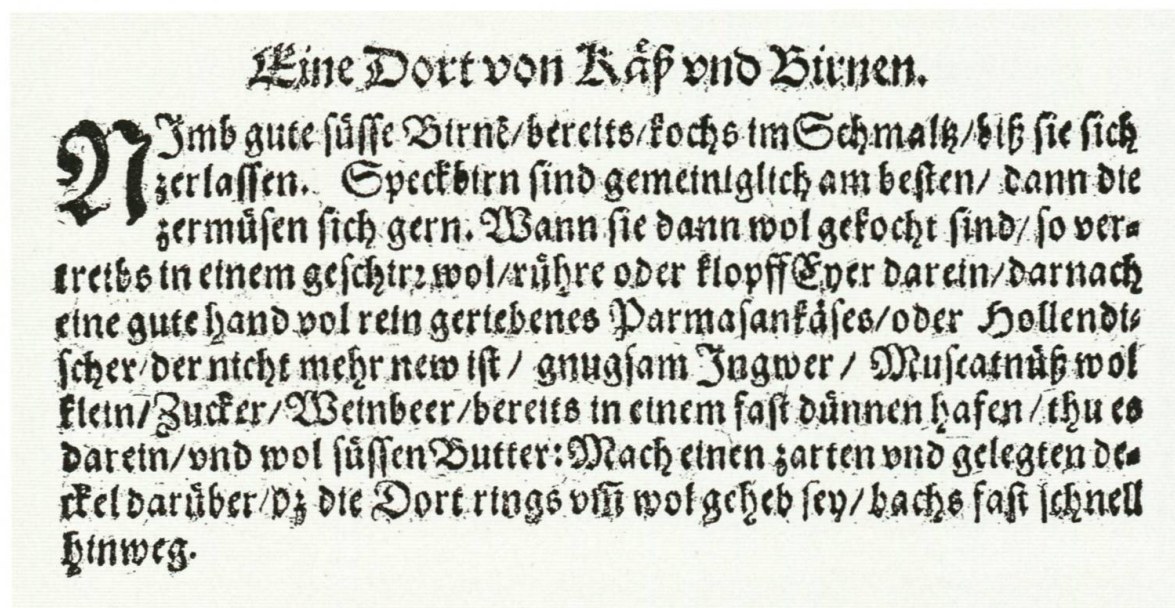 Eine Dort von Käß vnd Birnen.
NImb gute süsse Birnē/bereits/kochs im Schmaltz/biß sie sich
zerlassen. Speckbirn sind gemeiniglich am besten/ dann die
zermüsen sich gern. Wann sie dann wol gekocht sind/ so ver-
treibs in einem geschirꝛ wol/rühre oder klopff Eyer darein/darnach
eine gute hand vol rein geriebenes Parmasankäses/oder Hollendi-
scher/der nicht mehr new ist / gnugsam Ingwer / Muscatnüß wol
klein/Zucker/Weinbeer/bereits in einem fast dünnen hafen/thu es
darein/vnd wol süssen Butter: Mach einen zarten vnd gelegten de-
ckel darüber/dz die Dort rings vm̄ wol geheb sey/bachs fast schnell
hinweg.